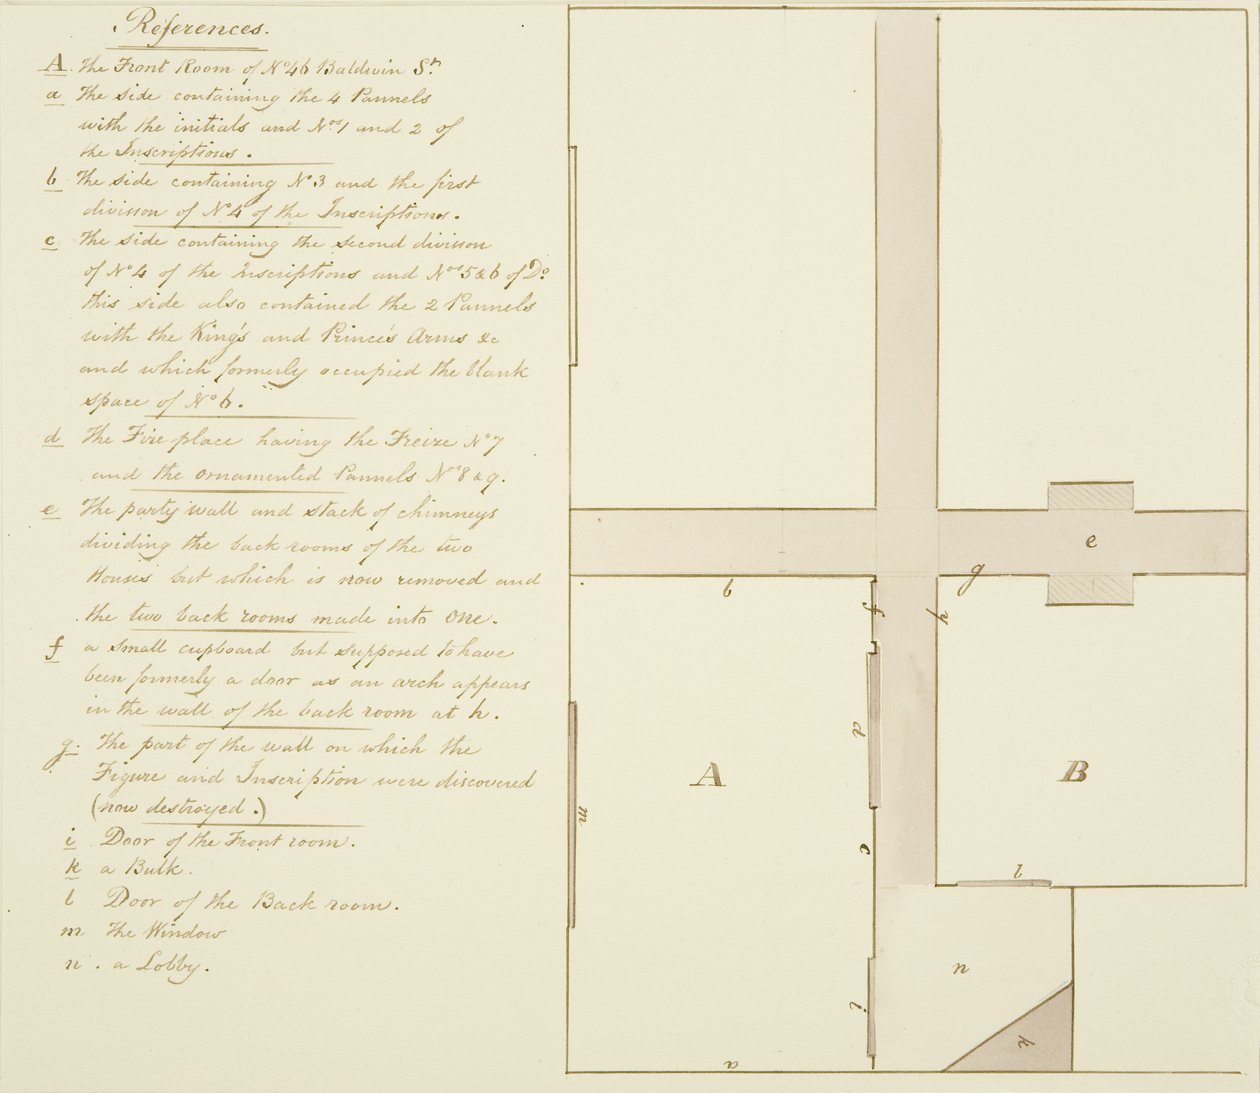 References.
A. The Front Room of No 46 Baldwin St.
a The side containing the 4 Pannels
with the initials and Nos 1 and 2 of
the Inscriptions.
b The side containing No 3 and the first
divison of No 4 of the Inscriptions.
c The side containing the second divison
of No 4 of the Inscriptions and Nos 5 & 6 of Do
this side also contained the 2 Pannels
with the King's and Prince's Arms &c
and which formerly occupied the blank
space of No 6.
d The Fire place having the Freize No 7
and the ornamented Pannels Nos 8 & 9.
e The party wall and stack of chimneys
dividing the back rooms of the two
Houses but which is now removed and
the two back rooms made into one.
f a small cupboard but supposed to have
been formerly a door as an arch appears
in the wall of the back room at h.
g. The part of the wall on which the
Figure and Inscription were discovered
(now destroyed.)
i Door of the Front room.
k a Bulk.
l Door of the Back room.
m The Window
n. a Lobby.
e
b
f
g
h
d
A
B
m
c
l
n
i
k
a